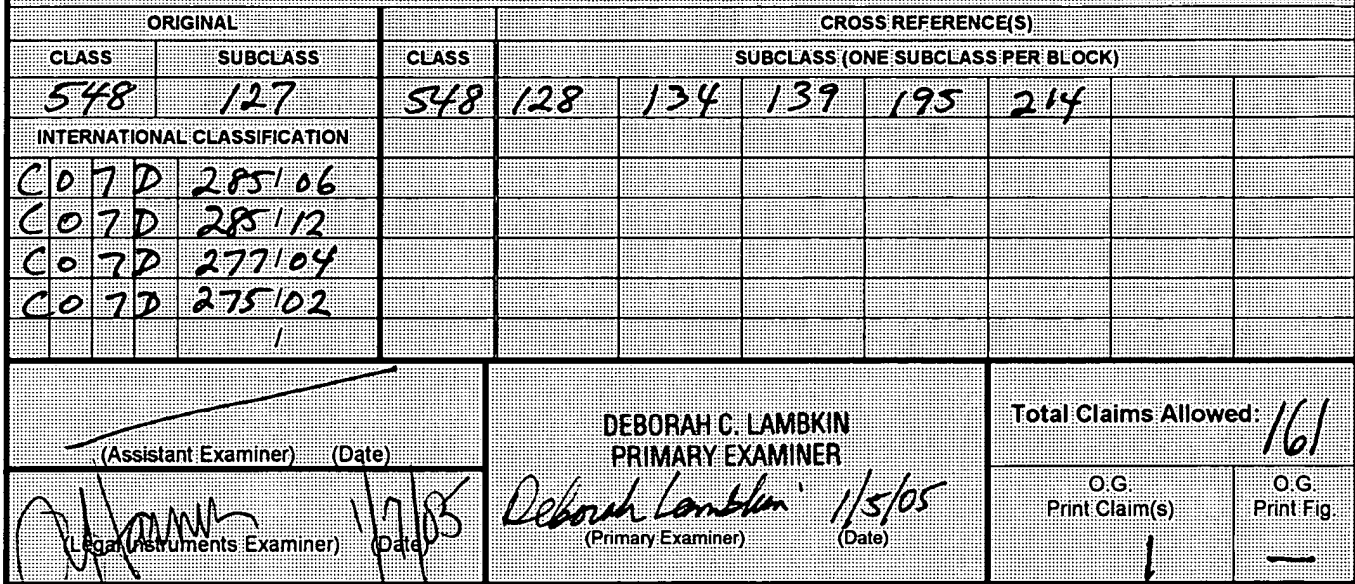 ORIGINAL CROSS REFERENCE(S)
CLASS SUBCLASS CLASS SUBCLASS (ONE SUBCLASS PER BLOCK)
548 127 548 128 134 139 195 214
INTERNATIONAL CLASSIFICATION
C 0 7 D 285/06
C 0 7 D 285/12
C 0 7 D 277/04
C 0 7 D 275/02
/
(Assistant Examiner) (Date)
DEBORAH C. LAMBKIN
PRIMARY EXAMINER
Deborah Lambkin 1/5/05
(Primary Examiner) (Date)
Total Claims Allowed: 161
1/7/05
(Legal Instruments Examiner) (Date)
O.G. Print Claim(s)
1
O.G. Print Fig.
—